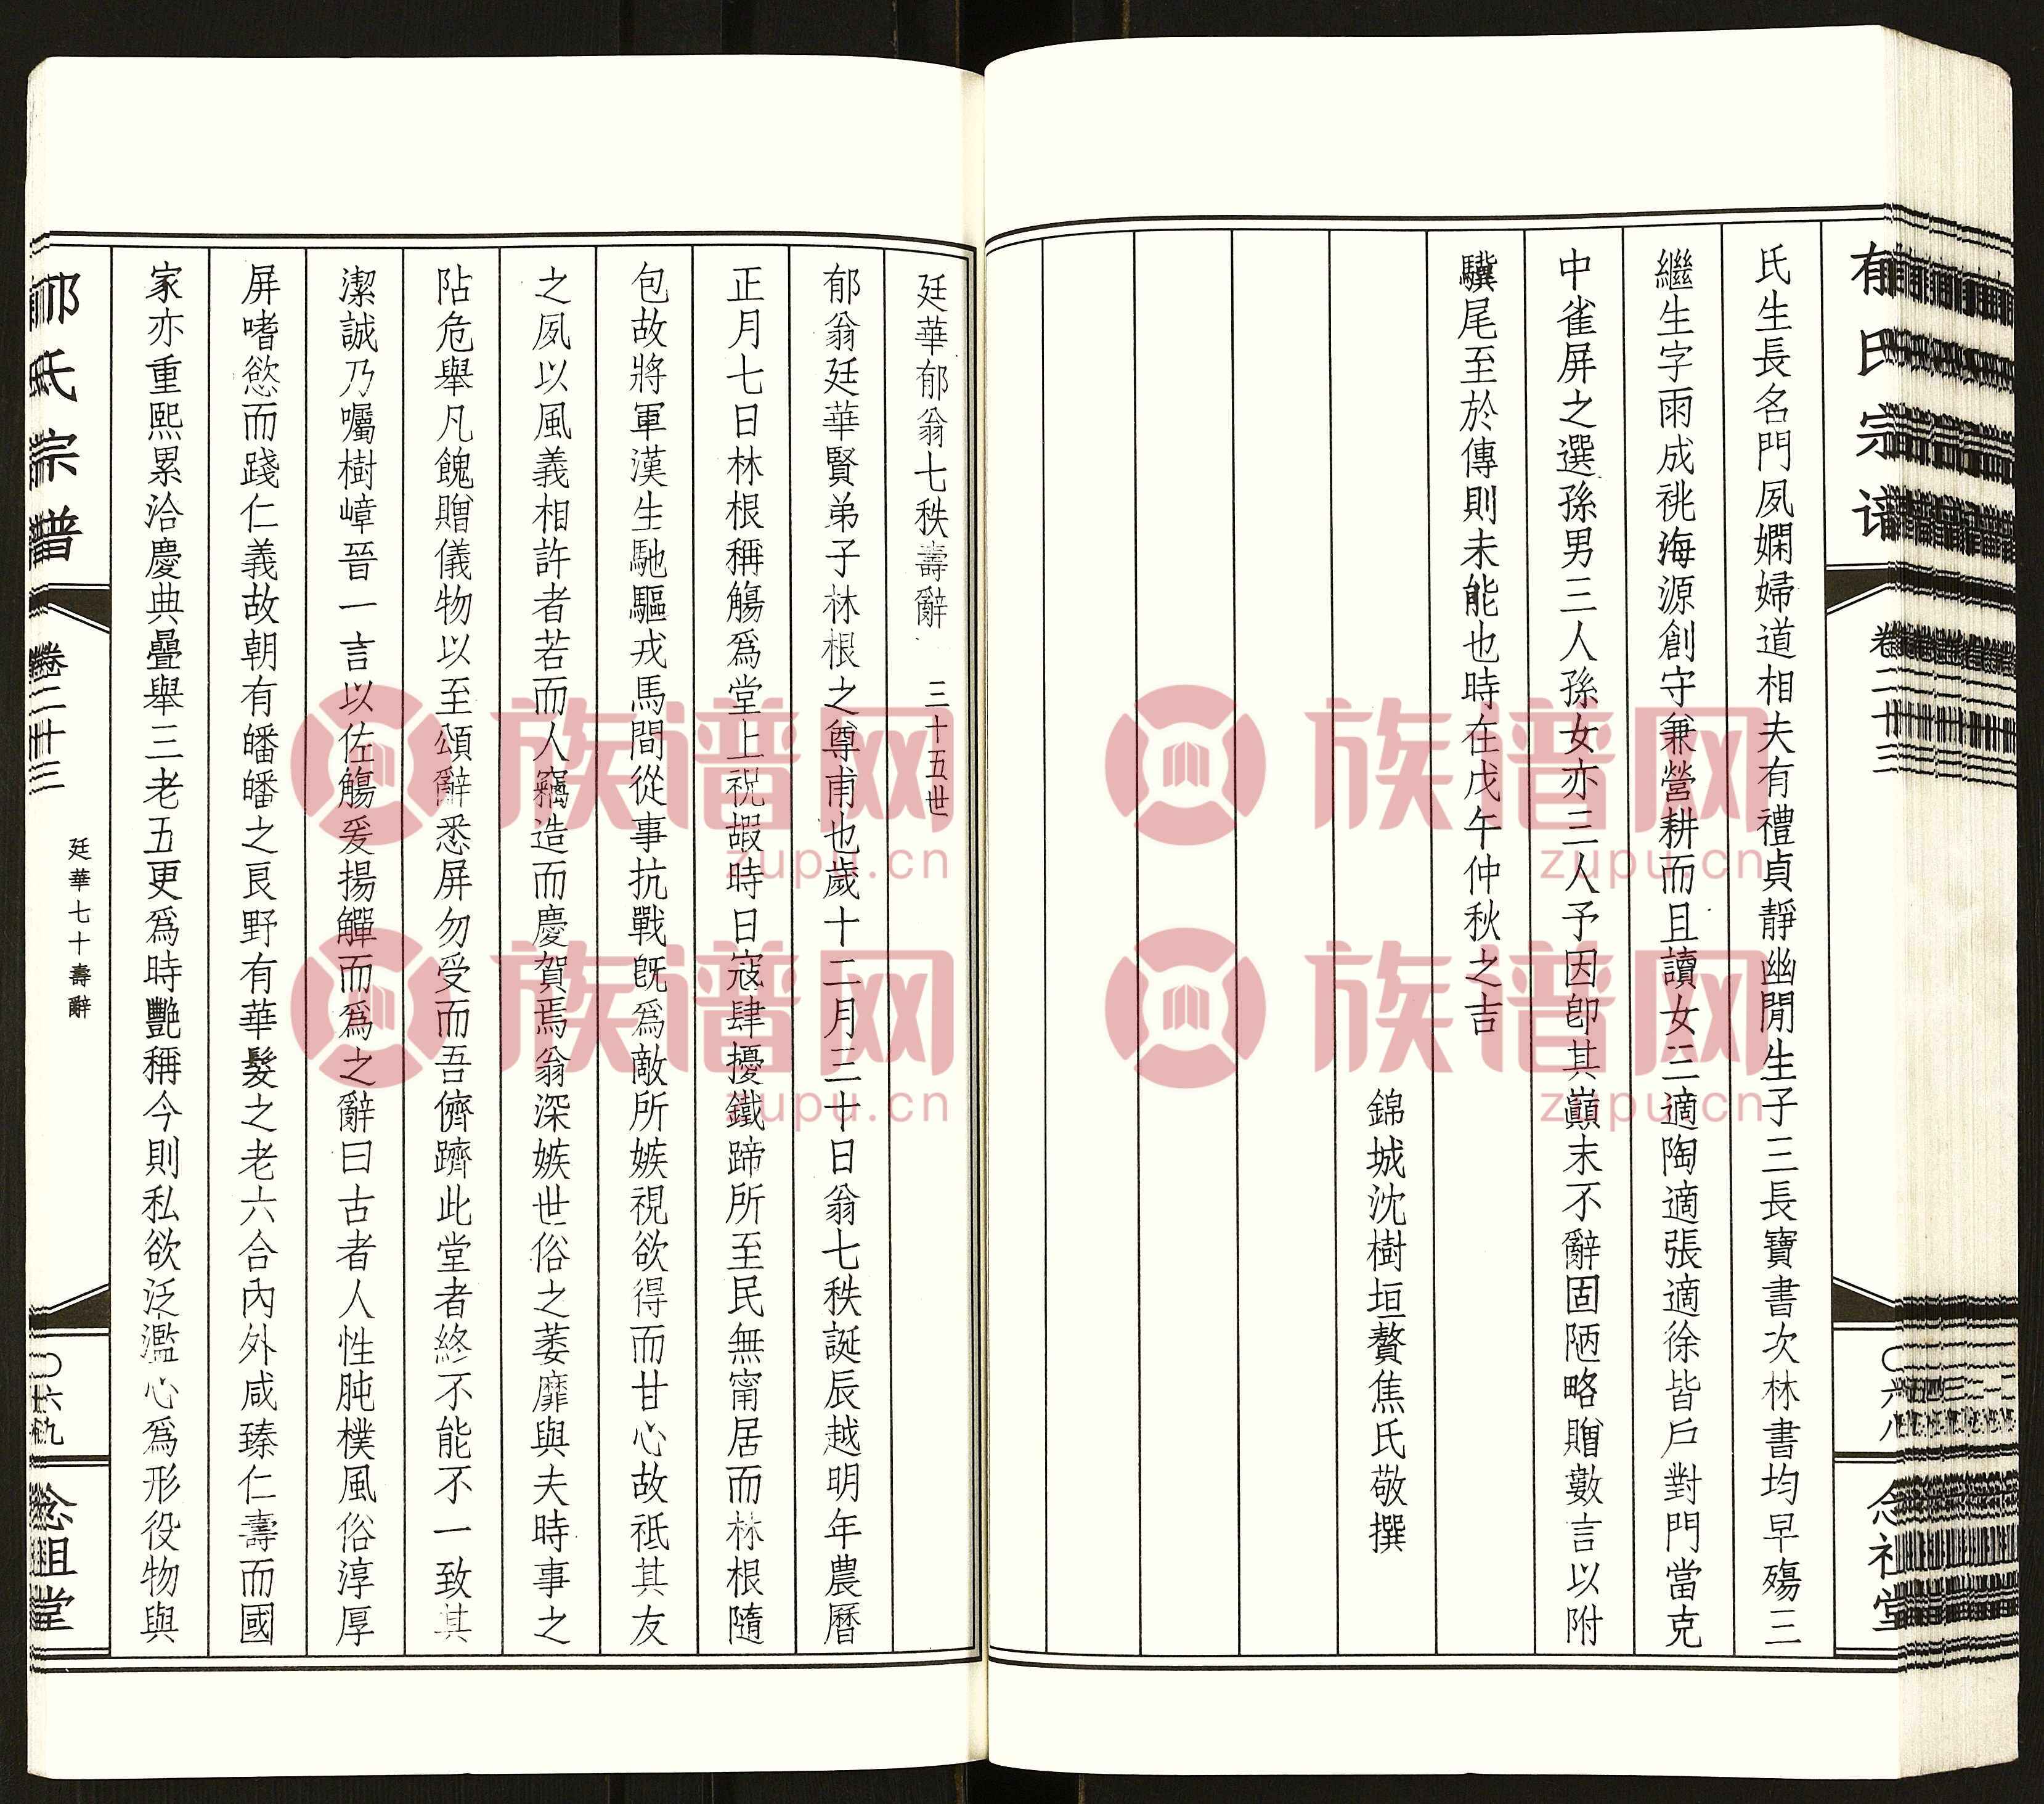 郁氏宗谱
卷二十三
〇六八
念祖堂
氏生長名門夙嫻婦道相夫有禮貞靜幽閒生子三長寶書次林書均早殤三
繼生字雨成祧海源創守兼營耕而且讀女三適陶適張適徐皆戶對門當克
中雀屏之選孫男三人孫女亦三人予因卽其巔末不辭固陋略贈數言以附
驥尾至於傳則未能也時在戊午仲秋之吉
錦城沈樹垣贅焦氏敬撰
廷華郁翁七秩壽辭 三十五世
郁翁廷華賢弟子林根之尊甫也歲十二月三十日翁七秩誕辰越明年農曆
正月七日林根稱觴爲堂上祝嘏時日寇肆擾鐵蹄所至民無甯居而林根隨
包故將軍漢生馳驅戎馬間從事抗戰旣爲敵所嫉視欲得而甘心故祇其友
之夙以風義相許者若而人竊造而慶賀焉翁深嫉世俗之萎靡與夫時事之
阽危舉凡餽贈儀物以至頌辭悉屏勿受而吾儕躋此堂者終不能不一致其
潔誠乃囑樹嶂晉一言以佐觴爰揚觶而爲之辭曰古者人性肫樸風俗淳厚
屏嗜慾而踐仁義故朝有皤皤之艮野有華髮之老六合內外咸臻仁壽而國
家亦重熙累洽慶典疊舉三老五更爲時艷稱今則私欲泛濫心爲形役物與
郁氏宗譜
卷二十三
廷華七十壽辭
〇六九
念祖堂
族谱网
zupu.cn
族谱网
zupu.cn
族谱网
zupu.cn
族谱网
zupu.cn